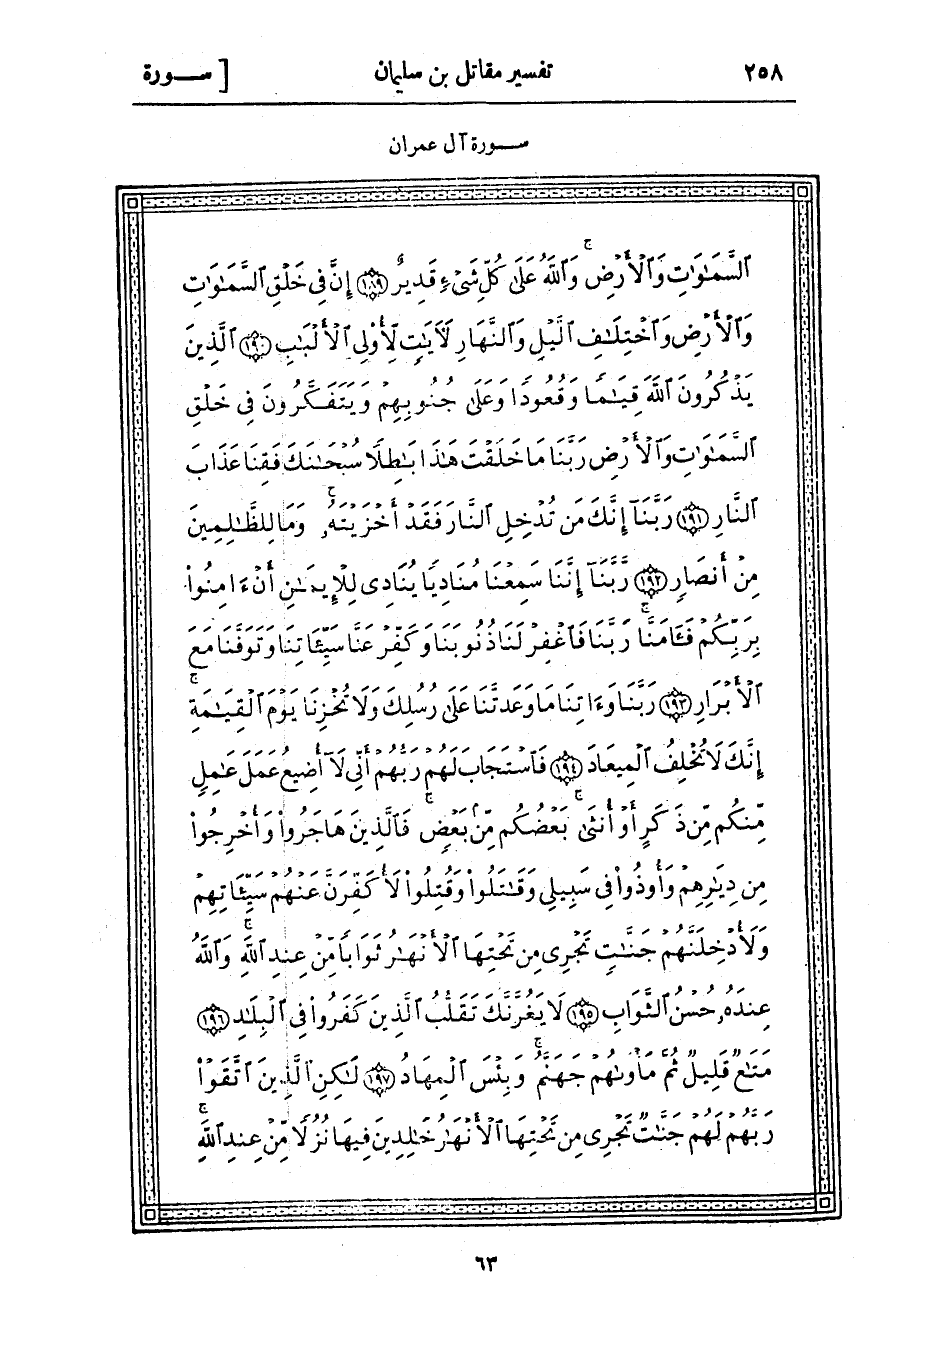 ٢٥٨ تفسير مقاتل بن سليمان [ ســـورة
ســـورة آل عمران
ٱلسَّمَٰوَٰتِ وَٱلْأَرْضِ ۚ وَٱللَّهُ عَلَىٰ كُلِّ شَىْءٍ قَدِيرٌ ﴿١٨٩﴾ إِنَّ فِى خَلْقِ ٱلسَّمَٰوَٰتِ
وَٱلْأَرْضِ وَٱخْتِلَٰفِ ٱلَّيْلِ وَٱلنَّهَارِ لَءَايَٰتٍ لِّأُو۟لِى ٱلْأَلْبَٰبِ ﴿١٩٠﴾ ٱلَّذِينَ
يَذْكُرُونَ ٱللَّهَ قِيَٰمًا وَقُعُودًا وَعَلَىٰ جُنُوبِهِمْ وَيَتَفَكَّرُونَ فِى خَلْقِ
ٱلسَّمَٰوَٰتِ وَٱلْأَرْضِ رَبَّنَا مَا خَلَقْتَ هَٰذَا بَٰطِلًا سُبْحَٰنَكَ فَقِنَا عَذَابَ
ٱلنَّارِ ﴿١٩١﴾ رَبَّنَآ إِنَّكَ مَن تُدْخِلِ ٱلنَّارَ فَقَدْ أَخْزَيْتَهُۥ ۖ وَمَا لِلظَّٰلِمِينَ
مِنْ أَنصَارٍ ﴿١٩٢﴾ رَّبَّنَآ إِنَّنَا سَمِعْنَا مُنَادِيًا يُنَادِى لِلْإِيمَٰنِ أَنْ ءَامِنُوا۟
بِرَبِّكُمْ فَـَٔامَنَّا ۚ رَبَّنَا فَٱغْفِرْ لَنَا ذُنُوبَنَا وَكَفِّرْ عَنَّا سَيِّـَٔاتِنَا وَتَوَفَّنَا مَعَ
ٱلْأَبْرَارِ ﴿١٩٣﴾ رَبَّنَا وَءَاتِنَا مَا وَعَدتَّنَا عَلَىٰ رُسُلِكَ وَلَا تُخْزِنَا يَوْمَ ٱلْقِيَٰمَةِ ۚ
إِنَّكَ لَا تُخْلِفُ ٱلْمِيعَادَ ﴿١٩٤﴾ فَٱسْتَجَابَ لَهُمْ رَبُّهُمْ أَنِّى لَآ أُضِيعُ عَمَلَ عَٰمِلٍ
مِّنكُم مِّن ذَكَرٍ أَوْ أُنثَىٰ ۖ بَعْضُكُم مِّنۢ بَعْضٍ ۖ فَٱلَّذِينَ هَاجَرُوا۟ وَأُخْرِجُوا۟
مِن دِيَٰرِهِمْ وَأُوذُوا۟ فِى سَبِيلِى وَقَٰتَلُوا۟ وَقُتِلُوا۟ لَأُكَفِّرَنَّ عَنْهُمْ سَيِّـَٔاتِهِمْ
وَلَأُدْخِلَنَّهُمْ جَنَّٰتٍ تَجْرِى مِن تَحْتِهَا ٱلْأَنْهَٰرُ ثَوَابًا مِّنْ عِندِ ٱللَّهِ ۗ وَٱللَّهُ
عِندَهُۥ حُسْنُ ٱلثَّوَابِ ﴿١٩٥﴾ لَا يَغُرَّنَّكَ تَقَلُّبُ ٱلَّذِينَ كَفَرُوا۟ فِى ٱلْبِلَٰدِ ﴿١٩٦﴾
مَتَٰعٌ قَلِيلٌ ثُمَّ مَأْوَىٰهُمْ جَهَنَّمُ ۚ وَبِئْسَ ٱلْمِهَادُ ﴿١٩٧﴾ لَٰكِنِ ٱلَّذِينَ ٱتَّقَوْا۟
رَبَّهُمْ لَهُمْ جَنَّٰتٌ تَجْرِى مِن تَحْتِهَا ٱلْأَنْهَٰرُ خَٰلِدِينَ فِيهَا نُزُلًا مِّنْ عِندِ ٱللَّهِ ۗ
٦٣